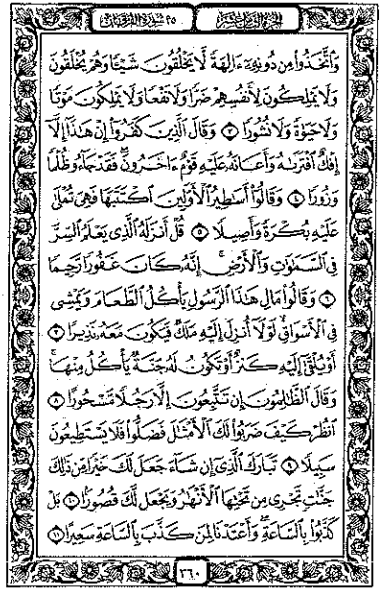 الجزء الثامن عشر ٢٥ سورة الفرقان
وَٱتَّخَذُوا۟ مِن دُونِهِۦٓ ءَالِهَةً لَّا يَخْلُقُونَ شَيْـًٔا وَهُمْ يُخْلَقُونَ
وَلَا يَمْلِكُونَ لِأَنفُسِهِمْ ضَرًّا وَلَا نَفْعًا وَلَا يَمْلِكُونَ مَوْتًا
وَلَا حَيَوٰةً وَلَا نُشُورًا ٣ وَقَالَ ٱلَّذِينَ كَفَرُوٓا۟ إِنْ هَـٰذَآ إِلَّآ
إِفْكٌ ٱفْتَرَىٰهُ وَأَعَانَهُۥ عَلَيْهِ قَوْمٌ ءَاخَرُونَ ۖ فَقَدْ جَآءُو ظُلْمًا
وَزُورًا ٤ وَقَالُوٓا۟ أَسَـٰطِيرُ ٱلْأَوَّلِينَ ٱكْتَتَبَهَا فَهِىَ تُمْلَىٰ
عَلَيْهِ بُكْرَةً وَأَصِيلًا ٥ قُلْ أَنزَلَهُ ٱلَّذِى يَعْلَمُ ٱلسِّرَّ
فِى ٱلسَّمَـٰوَٰتِ وَٱلْأَرْضِ ۚ إِنَّهُۥ كَانَ غَفُورًا رَّحِيمًا
٦ وَقَالُوا۟ مَالِ هَـٰذَا ٱلرَّسُولِ يَأْكُلُ ٱلطَّعَامَ وَيَمْشِى
فِى ٱلْأَسْوَاقِ ۙ لَوْلَآ أُنزِلَ إِلَيْهِ مَلَكٌ فَيَكُونَ مَعَهُۥ نَذِيرًا ٧
أَوْ يُلْقَىٰٓ إِلَيْهِ كَنزٌ أَوْ تَكُونُ لَهُۥ جَنَّةٌ يَأْكُلُ مِنْهَا ۚ
وَقَالَ ٱلظَّـٰلِمُونَ إِن تَتَّبِعُونَ إِلَّا رَجُلًا مَّسْحُورًا ٨
ٱنظُرْ كَيْفَ ضَرَبُوا۟ لَكَ ٱلْأَمْثَـٰلَ فَضَلُّوا۟ فَلَا يَسْتَطِيعُونَ
سَبِيلًا ٩ تَبَارَكَ ٱلَّذِىٓ إِن شَآءَ جَعَلَ لَكَ خَيْرًا مِّن ذَٰلِكَ
جَنَّـٰتٍ تَجْرِى مِن تَحْتِهَا ٱلْأَنْهَـٰرُ وَيَجْعَل لَّكَ قُصُورًۢا ١٠ بَلْ
كَذَّبُوا۟ بِٱلسَّاعَةِ ۖ وَأَعْتَدْنَا لِمَن كَذَّبَ بِٱلسَّاعَةِ سَعِيرًا ١١
٣٦٠